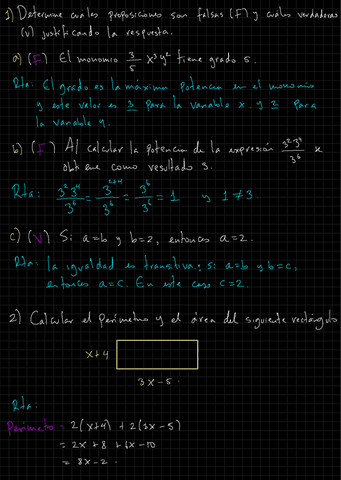 1) Determine cuales proposiciones son falsas (F) y cuáles verdaderas
(V) justificando la respuesta.
a) (F) El monomio 3/5 x³y² tiene grado 5.
Rta: El grado es la maxima potencia en el monomio
y este valor es 3 para la variable x y 2 para
la variable y.
b) (F) Al calcular la potencia de la expresión 3²3⁴/3⁶ se
obtiene como resultado 3.
Rta: 3²3⁴/3⁶ = 3²⁺⁴/3⁶ = 3⁶/3⁶ = 1 y 1 ≠ 3.
c) (V) Si a=b y b=2, entonces a=2.
Rta: la igualdad es transitiva: si a=b y b=c,
entonces a=c. En este caso c=2.
2) Calcular el perímetro y el área del siguiente rectángulo
x+4
3x-5
Rta:
Perímetro = 2(x+4) + 2(3x-5)
= 2x+8 + 6x-10
= 8x-2.